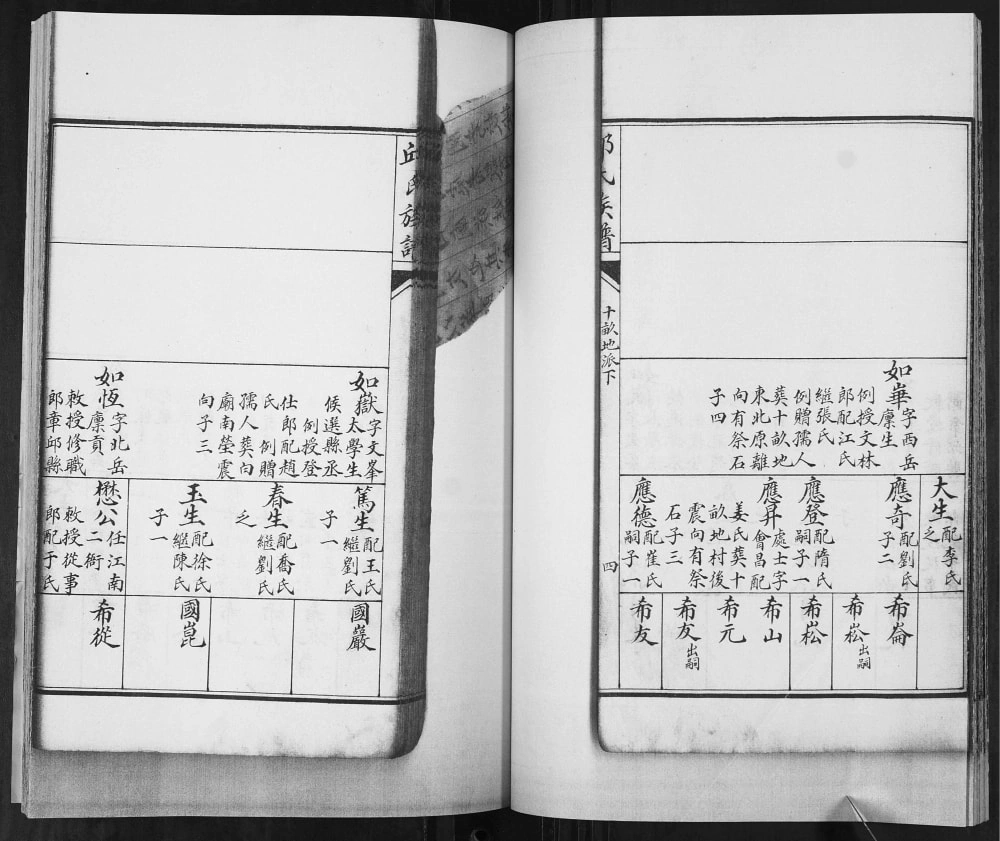 邱氏族譜
十畝地派下
四
如崋字西岳
廩生
例授文林
郎配江氏
繼張氏
例贈孺人
葬十畝地
東北原離
向有祭石
子四
大生配李氏
乏
應奇配劉氏
子二
應登配隋氏
嗣子一
應昇處士字
會昌配
姜氏葬十
畝地村後
震向有祭
石子三
應德配崔氏
嗣子一
希崙
希崧出嗣
希崧
希山
希元
希友出嗣
希友
邱氏族譜
如嶽字文峯
太學生
候選縣丞
例授登
仕郎配趙
氏例贈
孺人葬向
廟南塋震
向子三
如恆字北岳
廩貢
敕授修職
郎章邱縣
篤生配王氏
繼劉氏
子一
春生配喬氏
繼劉氏
乏
玉生配徐氏
繼陳氏
子一
懋公任江南
二衙
敕授從事
郎配于氏
國巖
國崑
希從